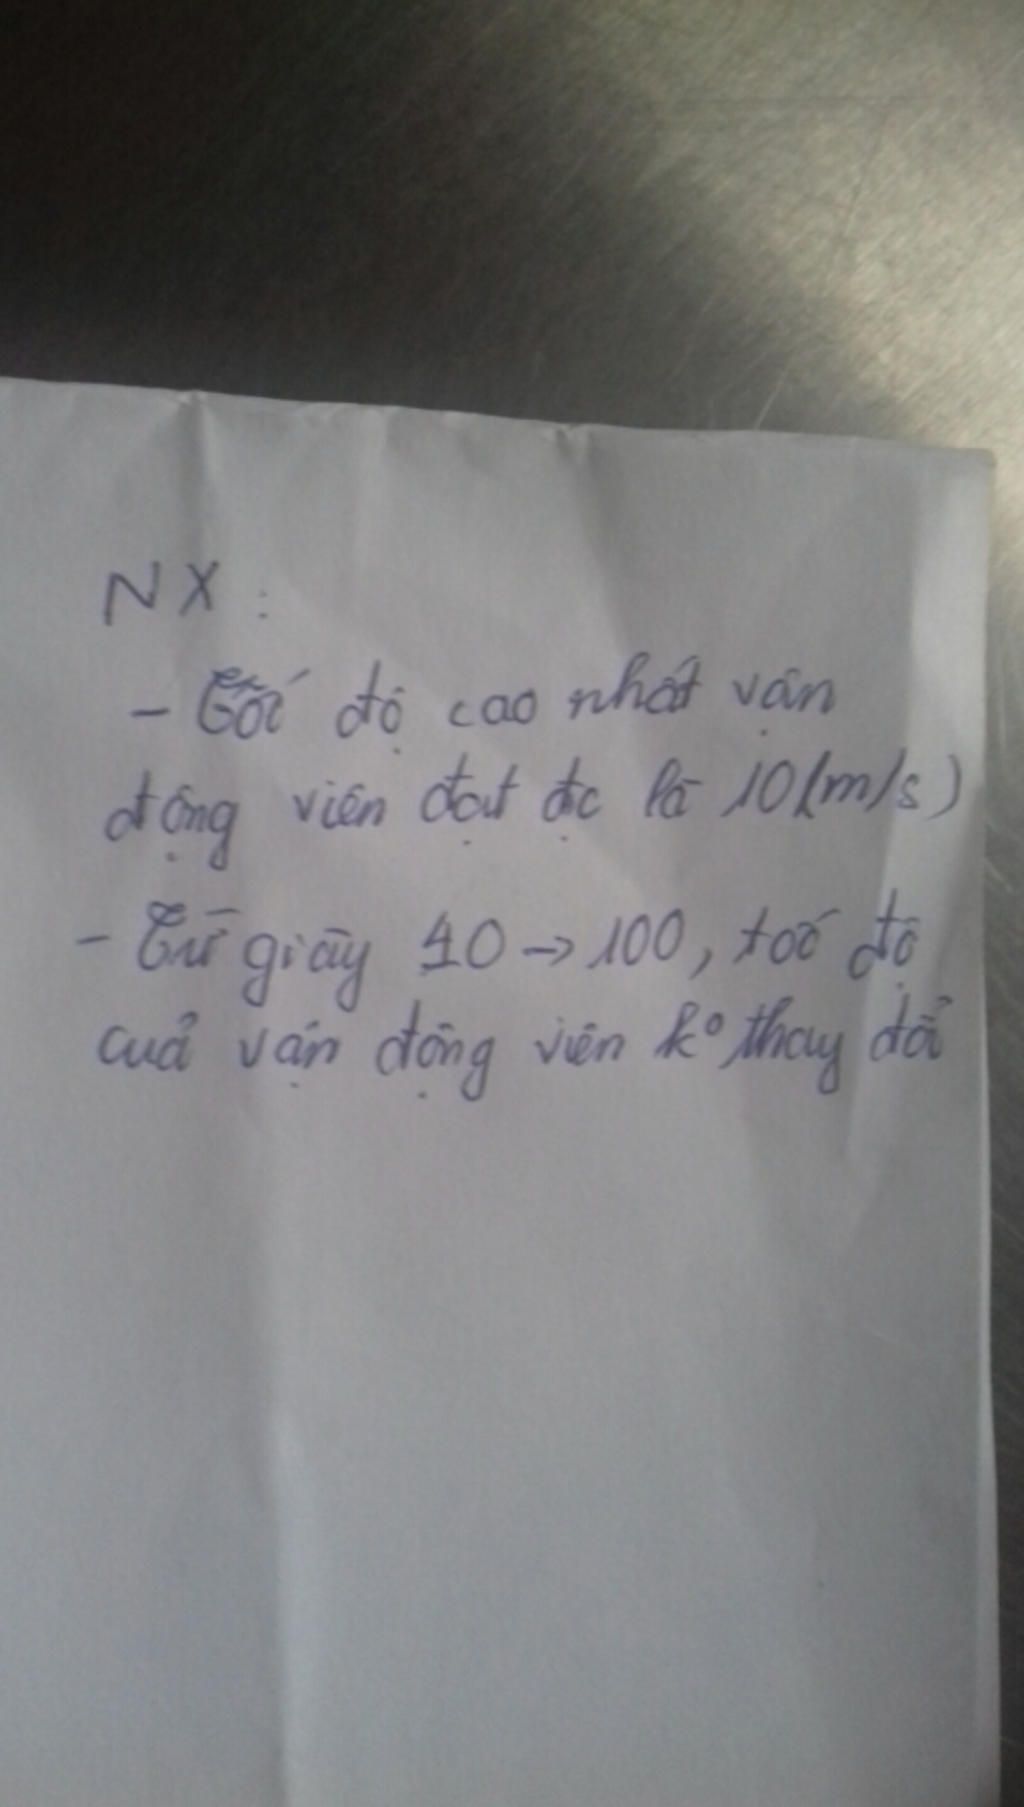 NX :
- Tốc độ cao nhất vận
động viên đạt đc là 10(m/s)
- Từ giây 40 → 100, tốc độ
của vận động viên kº thay đổi